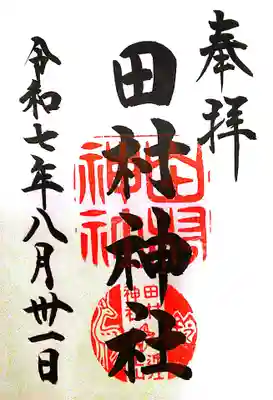 奉拝
田村神社
令和七年八月卅一日